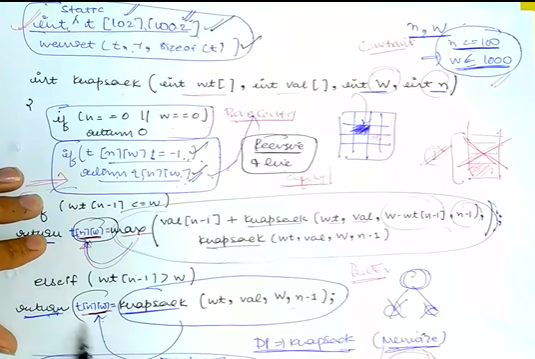 static
int t [102][1002]
memset (t, -1, sizeof (t))
n, W
Constant
n <= 100
W <= 1000
int knapsack (int wt[], int val[], int W, int n)
{
if (n == 0 || w == 0)
return 0
if (t [n][w] != -1)
return t[n][w]
Recursive
if (wt[n-1] <= w)
return t[n][w] = max (val[n-1] + knapsack (wt, val, W-wt[n-1], n-1),
knapsack (wt, val, W, n-1)
elseif (wt[n-1] > W)
return t[n][w] = knapsack (wt, val, W, n-1);
DP => knapsack (memoize)